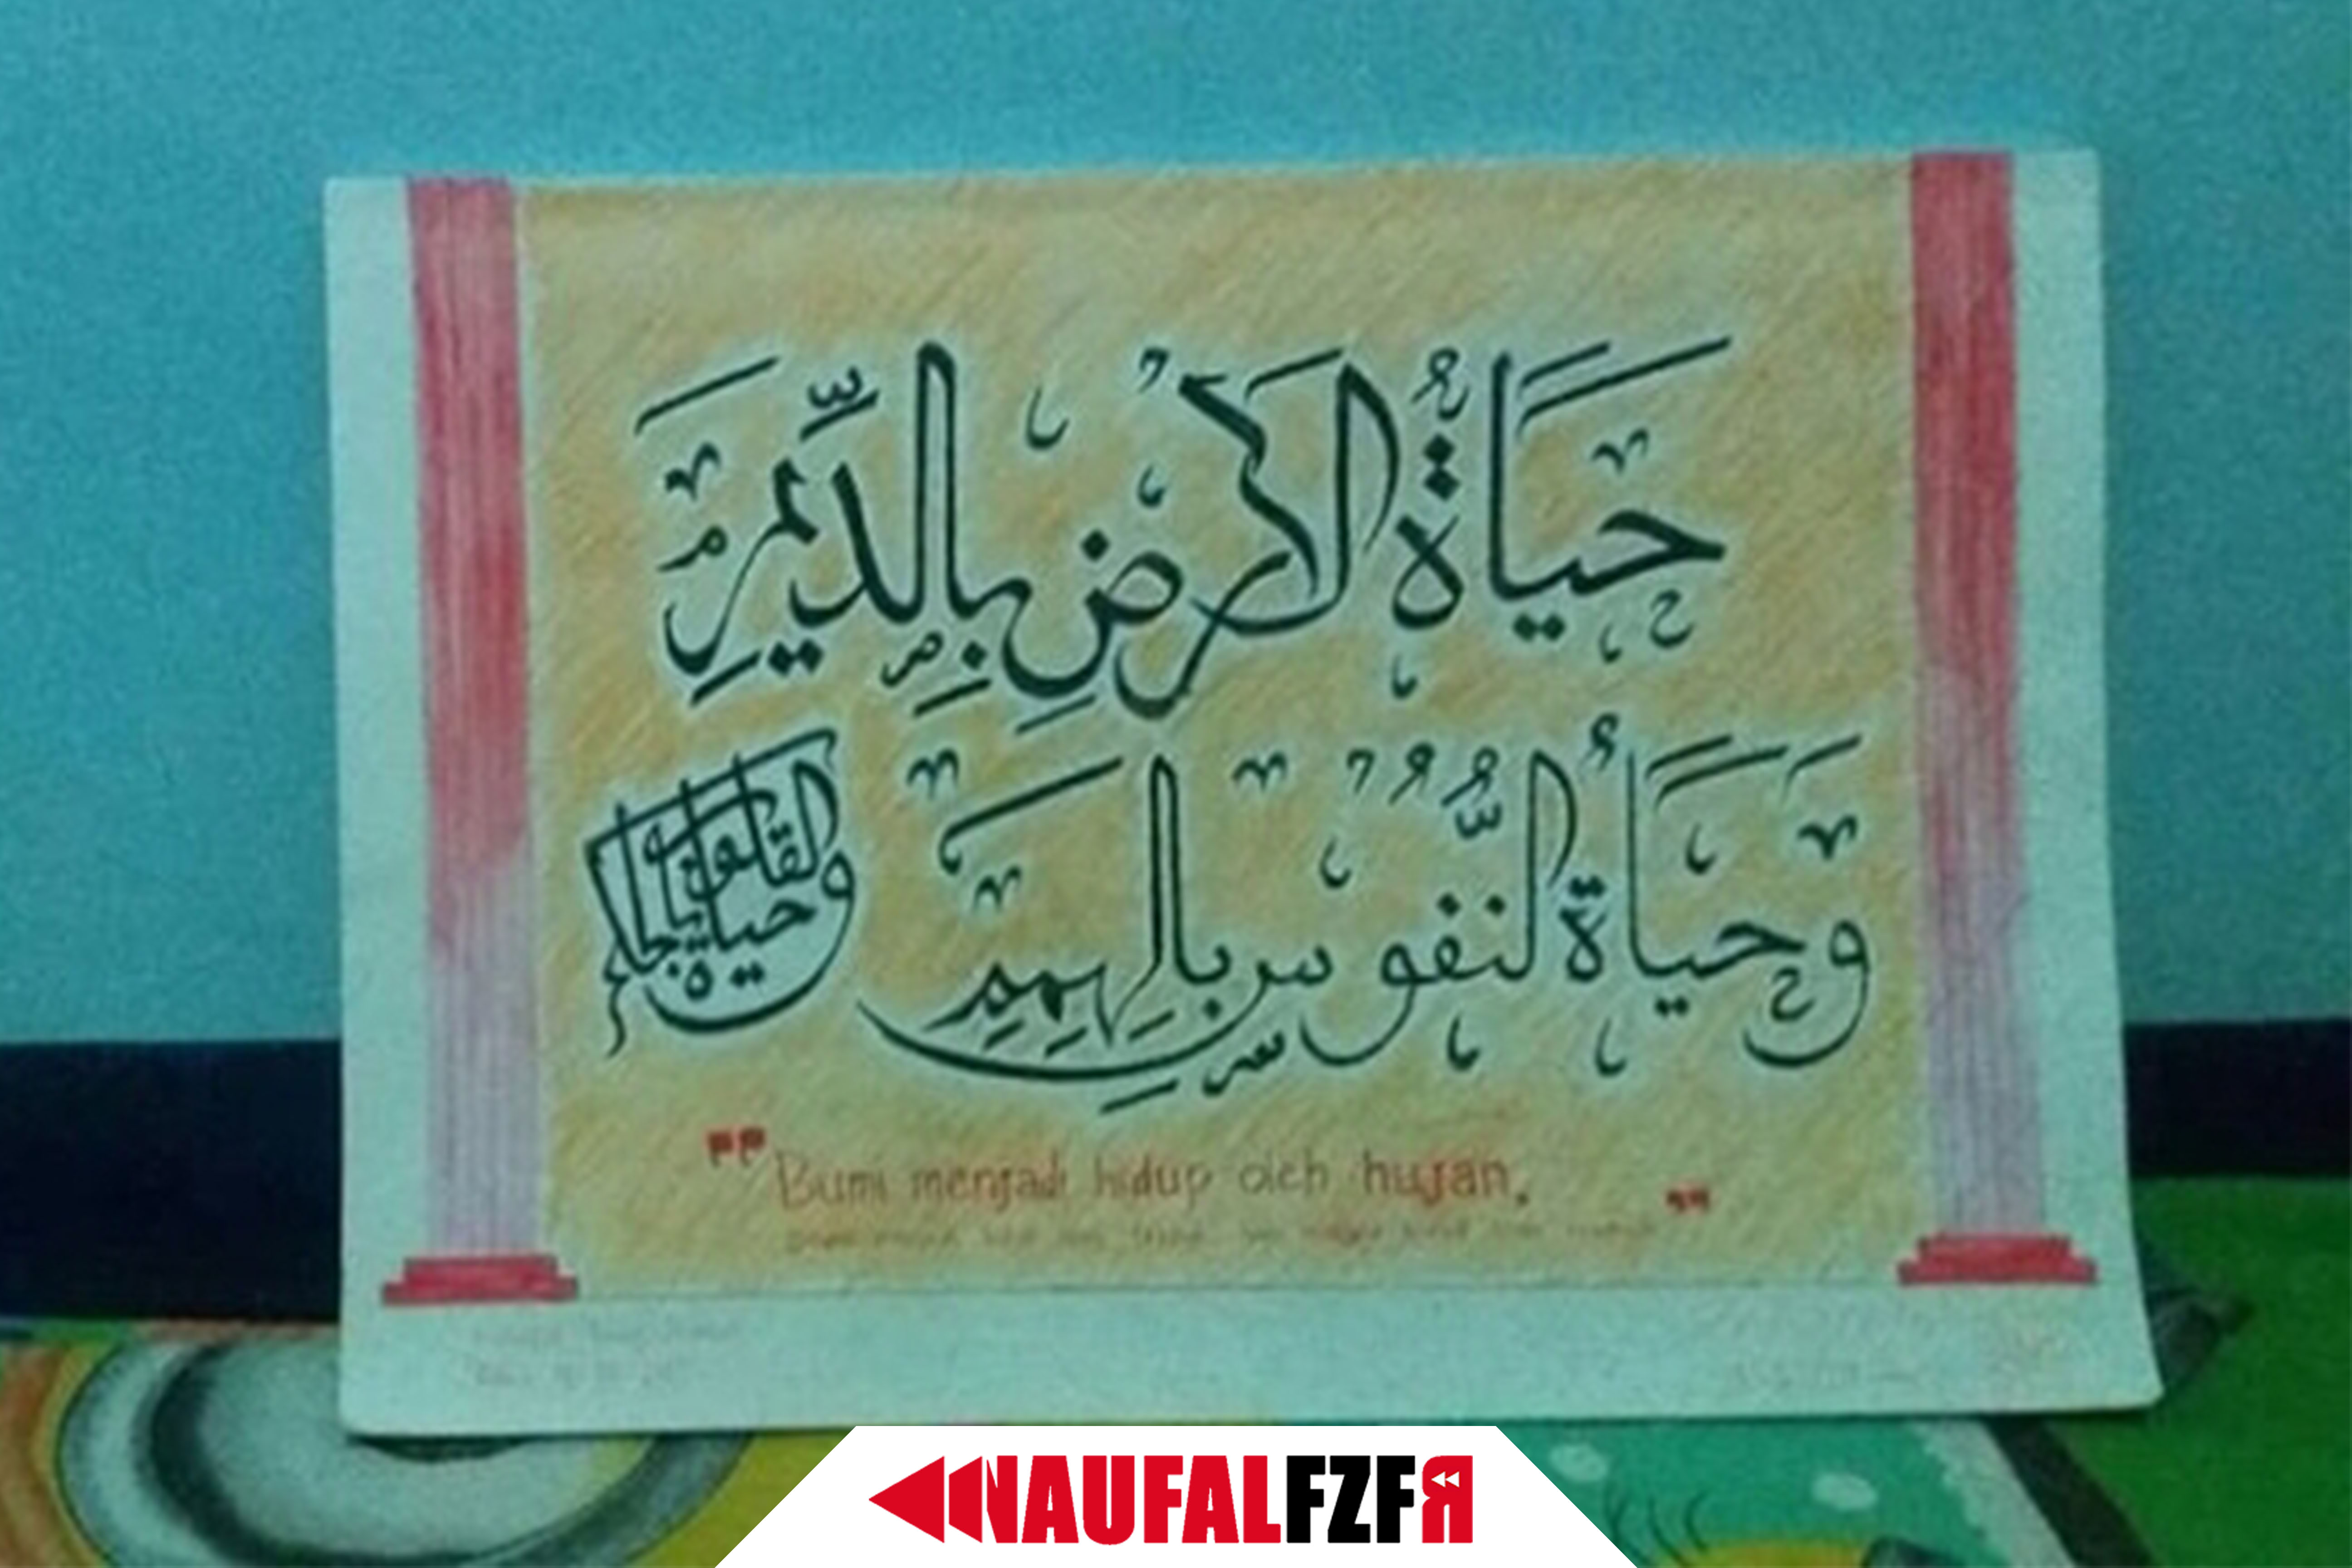 حَيَاةُ الْأَرْضِ بِالدِّيَمِ
وَحَيَاةُ النُّفُوْسِ بِالْهِمَمِ
وحياة القلوب بالحكم
"Bumi menjadi hidup oleh hujan.
"
NAUFALFZFR